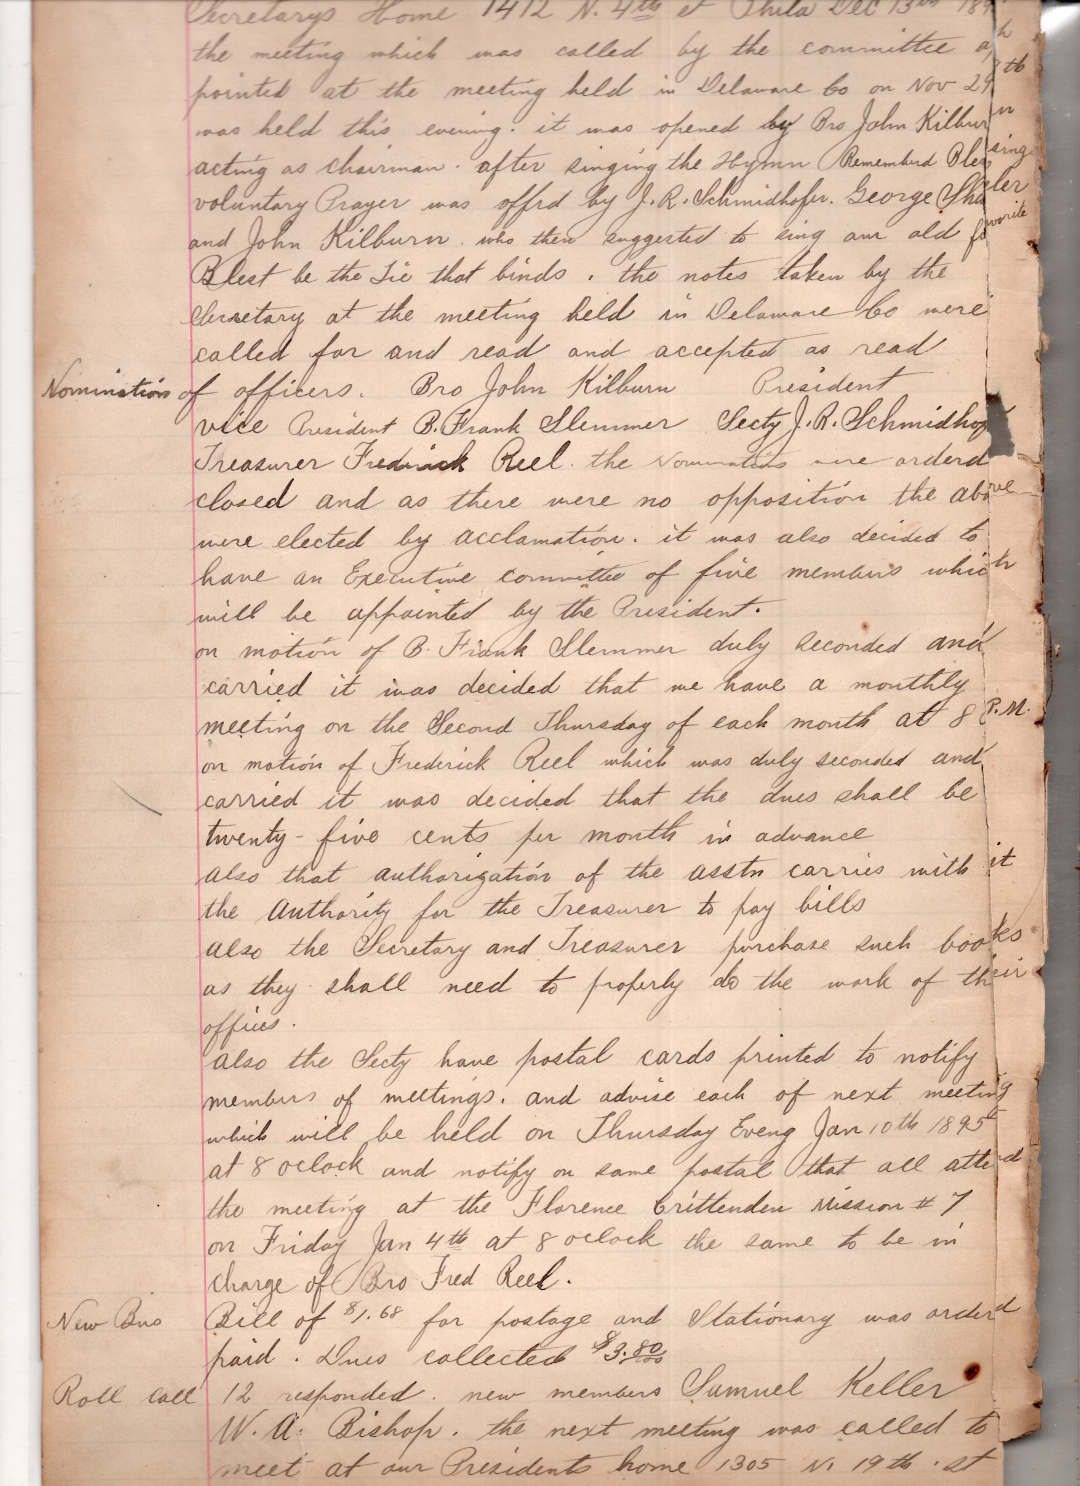 Secretarys Home 1412 N. 4th st Phila Dec 13th 189
the meeting which was called by the committee ap
pointed at the meeting held in Delaware Co on Nov 29th
was held this evening. it was opened by Bro John Kilburn
acting as chairman. after singing the Hymn Rememberd Blessing
voluntary Prayer was offrd by J. R. Schmidhofer. George
and John Kilburn. who then suggested to sing our old favorite
Blest be the Tie that binds. the notes taken by the
Secretary at the meeting held in Delaware Co were
called for and read and accepted as read
Nomination of officers. Bro John Kilburn President
vice President B. Frank Slemmer Secty J. R. Schmidhof
Treasurer Fredrick Reel. the Nominations were orderd
closed and as there were no opposition the above
were elected by acclamation. it was also decided to
have an Executive committe of five members which
will be appointed by the President.
on motion of B. Frank Slemmer duly seconded and
carried it was decided that we have a monthly
meeting on the Second Thursday of each month at 8 P.M.
on motion of Frederick Reel which was duly seconded and
carried it was decided that the dues shall be
twenty-five cents per month in advance
also that authorization of the asstn carries with it
the Authority for the Treasurer to pay bills
also the Secretary and Treasurer purchase such books
as they shall need to properly do the work of their
offices.
also the Secty have postal cards printed to notify
members of meetings. and advise each of next meeting
which will be held on Thursday Eveng Jan 10th 1895
at 8 oclock and notify on same postal that all attend
the meeting at the Florence Crittenden Mission # 7
on Friday Jan 4th at 8 oclock the same to be in
charge of Bro Fred Reel.
New Bus Bill of $1.68 for postage and Stationary was orderd
paid. Dues collected $3.80
Roll call 12 responded. new members Samuel Keller
W. A. Bishop. the next meeting was called to
meet at our Presidents home 1305 N. 19th. st